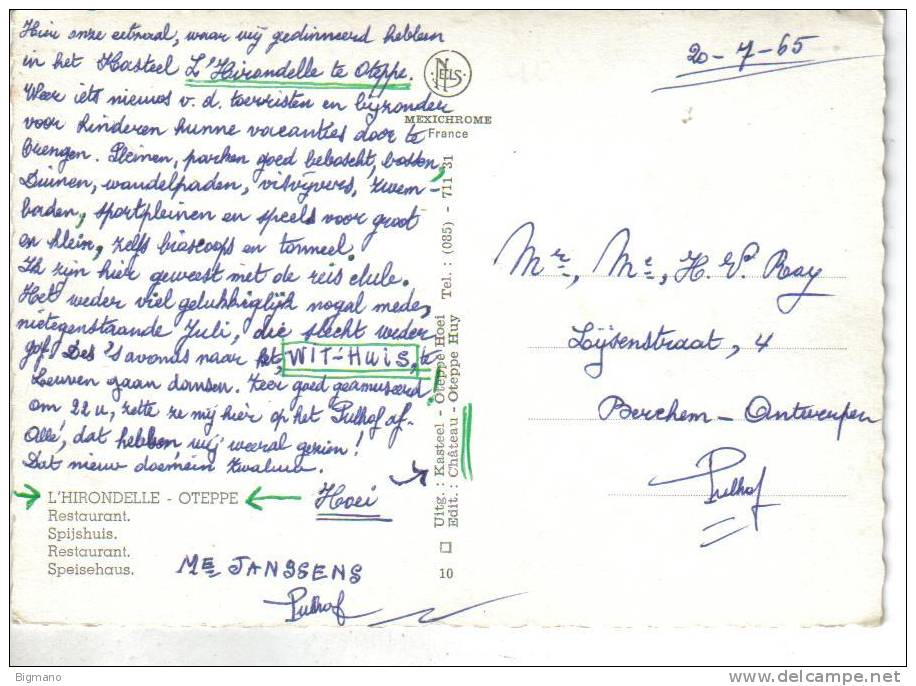 Hier onze eetzaal, waar wij gedinneerd hebben
in het Kasteel L'Hirondelle te Oteppe.
Weer iets nieuws v. d. toerristen en bijzonder
voor kinderen hunne vacanties door te
brengen. Pleinen, parken goed beboscht, bossen,
Duinen, wandelpaden, visvijvers, zwem-
baden, sportpleinen en speels voor groot
en klein, zelfs bioscoops en tonneel.
Ik zijn hier geweest met de reis clule.
Het weder viel gelukkiglijk nogal mede,
nietegenstaande Juli, die slecht weder
gaf. Des 's avonds naar het, WIT-HUIS, te
Leuven gaan dansen. Zeer goed geamuseerd,
om 22 u, zette ze mij hier op het Pulhof af.
Allé, dat hebben wij weeral gezien!
Dat nieuw doemein zwaluw.
Hoei
L'HIRONDELLE - OTEPPE
Restaurant.
Spijshuis.
Restaurant.
Speisehaus.
ME JANSSENS
Pulhof
NELS
MEXICHROME
France
Uitg.: Kasteel - Oteppe Hoei Tel.: (085) - 711 31
Edit.: Château - Oteppe Huy
10
20-7-65
Mr, Me, H. & P. Ray
Lijsenstraat, 4
Berchem-Antwerpen
Pulhof
Bigmano
www.delcampe.net